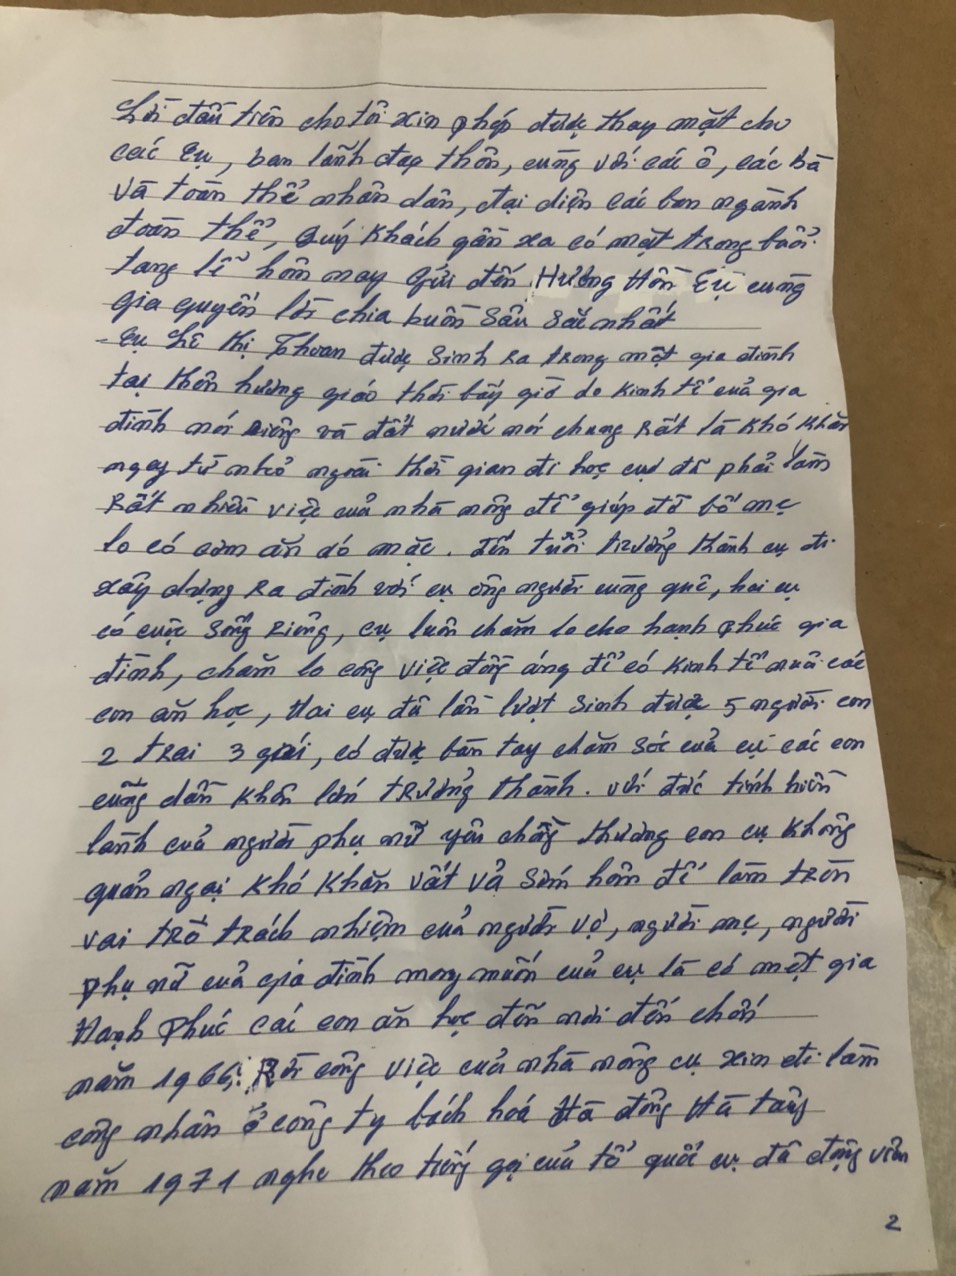 Lời đầu tiên cho tôi xin phép được thay mặt cho
các cụ, ban lãnh đạo thôn, cùng với các ô, các bà
và toàn thể nhân dân, đại diện các ban ngành
đoàn thể, quý khách gần xa có mặt trong buổi
tang lễ hôm nay gửi đến Hương Hồn cụ cùng
gia quyến lời chia buồn sâu sắc nhất
- cụ Lê Thị Thoan được sinh ra trong một gia đình
tại thôn hương giáo thời bấy giờ do kinh tế của gia
đình nói riêng và đất nước nói chung rất là khó khăn
ngay từ nhỏ ngoài thời gian đi học cụ đã phải làm
rất nhiều việc của nhà nông để giúp đỡ bố mẹ
lo có cơm ăn áo mặc. đến tuổi trưởng thành cụ đi
xây dựng ra đình với cụ ông người cùng quê, hai cụ
có cuộc sống riêng, cụ luôn chăm lo cho hạnh phúc gia
đình, chăm lo công việc đồng áng để có kinh tế nuôi các
con ăn học, Hai cụ đã lần lượt sinh được 5 người con
2 trai 3 gái, có được bàn tay chăm sóc của cụ các con
cũng dần khôn lớn trưởng thành. với đức tính hiền
lành của người phụ nữ yêu chồng thương con cụ không
quản ngại khó khăn vất vả sớm hôm để làm tròn
vai trò trách nhiệm của người vợ, người mẹ, người
phụ nữ của gia đình mong muốn của cụ là có một gia
Hạnh phúc các con ăn học đến nơi đến chốn
năm 1966: Rời công việc của nhà nông cụ xin đi làm
công nhân ở công ty bách hoá Hà đông Hà tây
năm 1971 nghe theo tiếng gọi của tổ quốc cụ đã động viên
2